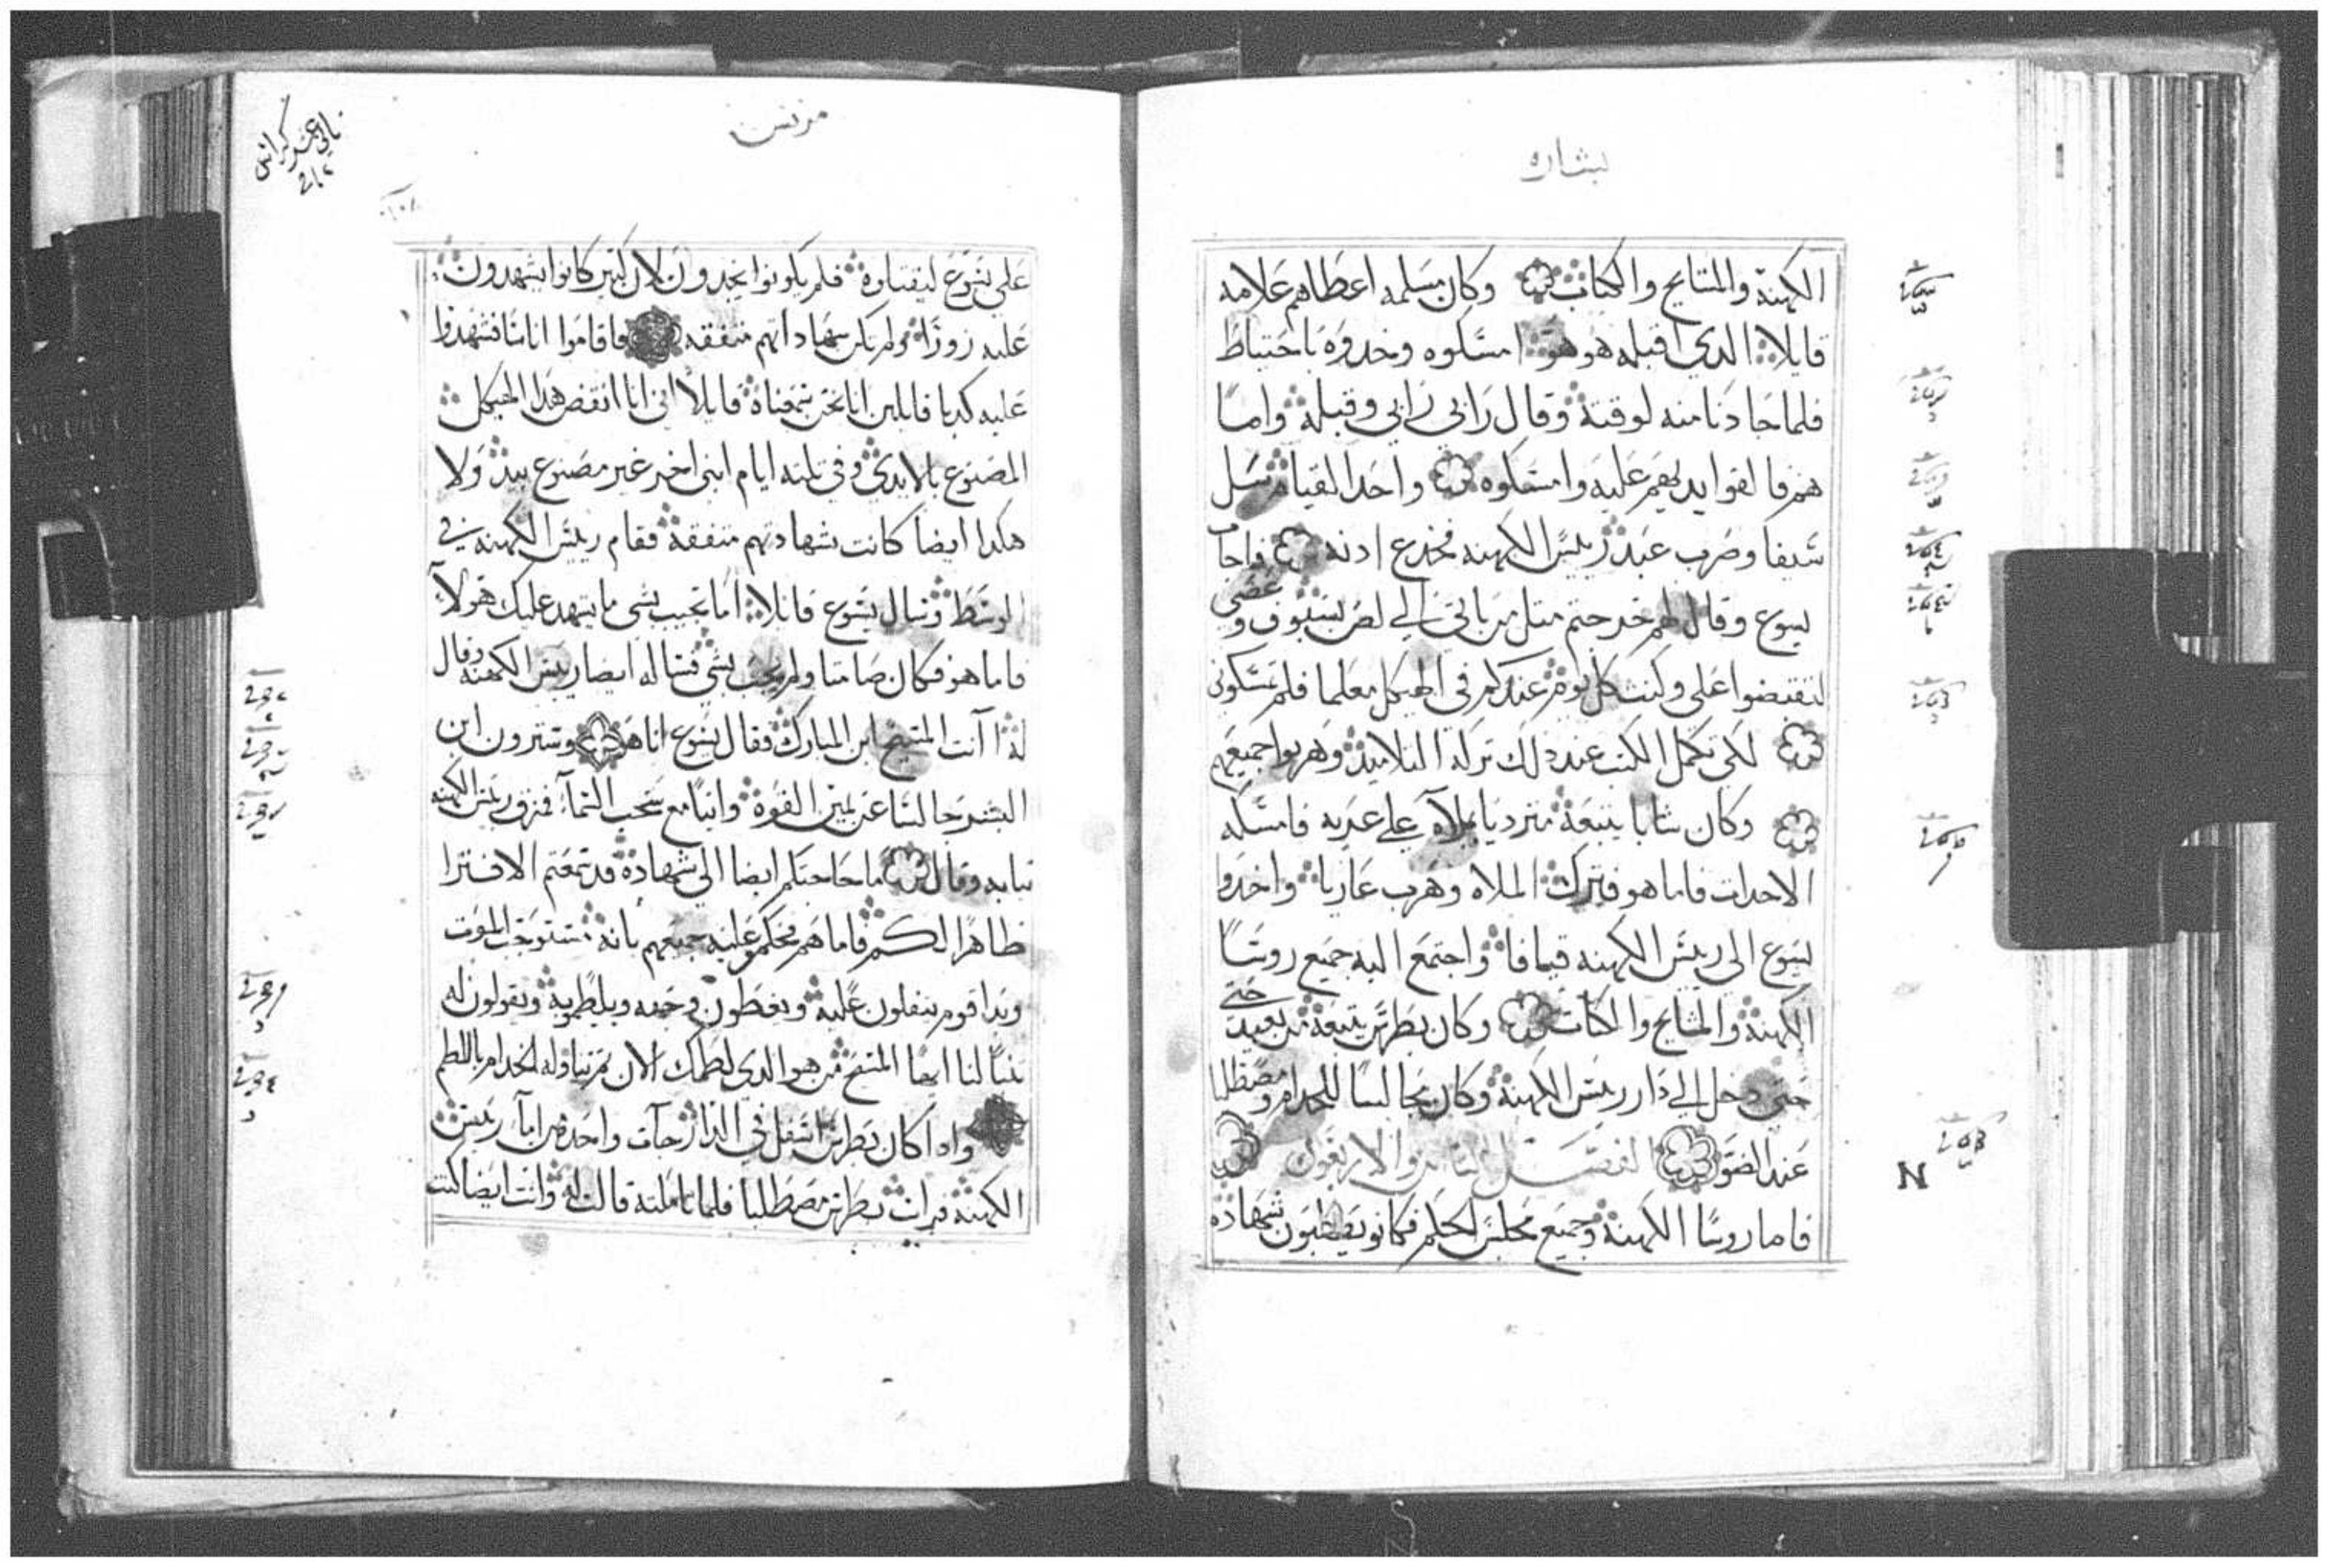 بشاره
الكهنة والمشايخ والكتاب وكان مسلمه اعطاهم علامه
قايلا الدي اقبله هو هو امسكوه وخدوه باحتياط
فلما جا دنا منه لوقته وقال رابي رابي وقبله واما
هم فالقوا يديهم عليه وامسكوه واحد القيام سل
سيفا وضرب عبد رييس الكهنه فخدع ادنه فاجاب
يسوع وقال لهم خرجتم متل من ياتي الي لص بسيوف وعصي
لتقبضوا علي وكنت كل يوم عندكم في الهيكل معلما فلم تمسكوني
لكي تكمل الكتب عند ذلك تركه التلاميد وهربوا جميعهم
وكان شابا يتبعه متردياً بملاه علي عريه فامسكه
الاحدات فاما هو فترك الملاه وهرب عاريا واخدوا
يسوع الي رييس الكهنه قيافا واجتمع اليه جميع روسا
الكهنة والمشايخ والكتاب وكان بطرس يتبعه من بعيد حتى
حتى دخل الي دار رييس الكهنة وكان جالسا للخدام ومصطلا
عند الضو الفصل التامن والاربعون
فاما روسا الكهنة وجميع مجلس الحكم فكانو يطلبون شهادة
مرقس
تاني عشر كراس
علي يسوع ليقتلوه فلم يكونوا يجدون لان كتير كانوا يشهدون
عليه زورًا ولم تكن شهاداتهم متفقه فاقاموا اناسًا فشهدوا
عليه كدبا قايلين اننا نحن سمعناه قايلا اني انا انقض هدا الهيكل
المصنوع بالايدي وفي تلته ايام ابني اخر غير مصنوع بيد ولا
هكدا ايضا كانت شهادتهم متفقة فقام رييس الكهنه في
الوسط وسال يسوع قايلا اما تجيب بشي ما يشهد عليك هولا
فاما هو فكان صامتا ولم يجب بشي فساله ايضا رييس الكهنه وقال
له آنت المسيح ابن المبارك فقال يسوع انا هو وسترون ابن
البشر جالسا عن يمين القوة واتيا مع سحب السماء فمزق رييس الكهنه
تيابه وقال ما حاجتكم ايضا الي شهادة قد سمعتم الافترا
ظاهرا لكم فاما هم فحكمو عليه جميعهم بانه مستوجب الموت
وبدا قوم يتفلون عليه ويغطون وجهه ويلطمونه ويقولون له
تنبا لنا ايها المسيح من هو الدي لطمك الان تم تناوله الخدام باللطم
وادا كان بطرس اسفل في الدار جآت واحدة من امآ رييس
الكهنة فرات بطرس مصطليا فلما تاملته قالت له وانت ايضا كنت